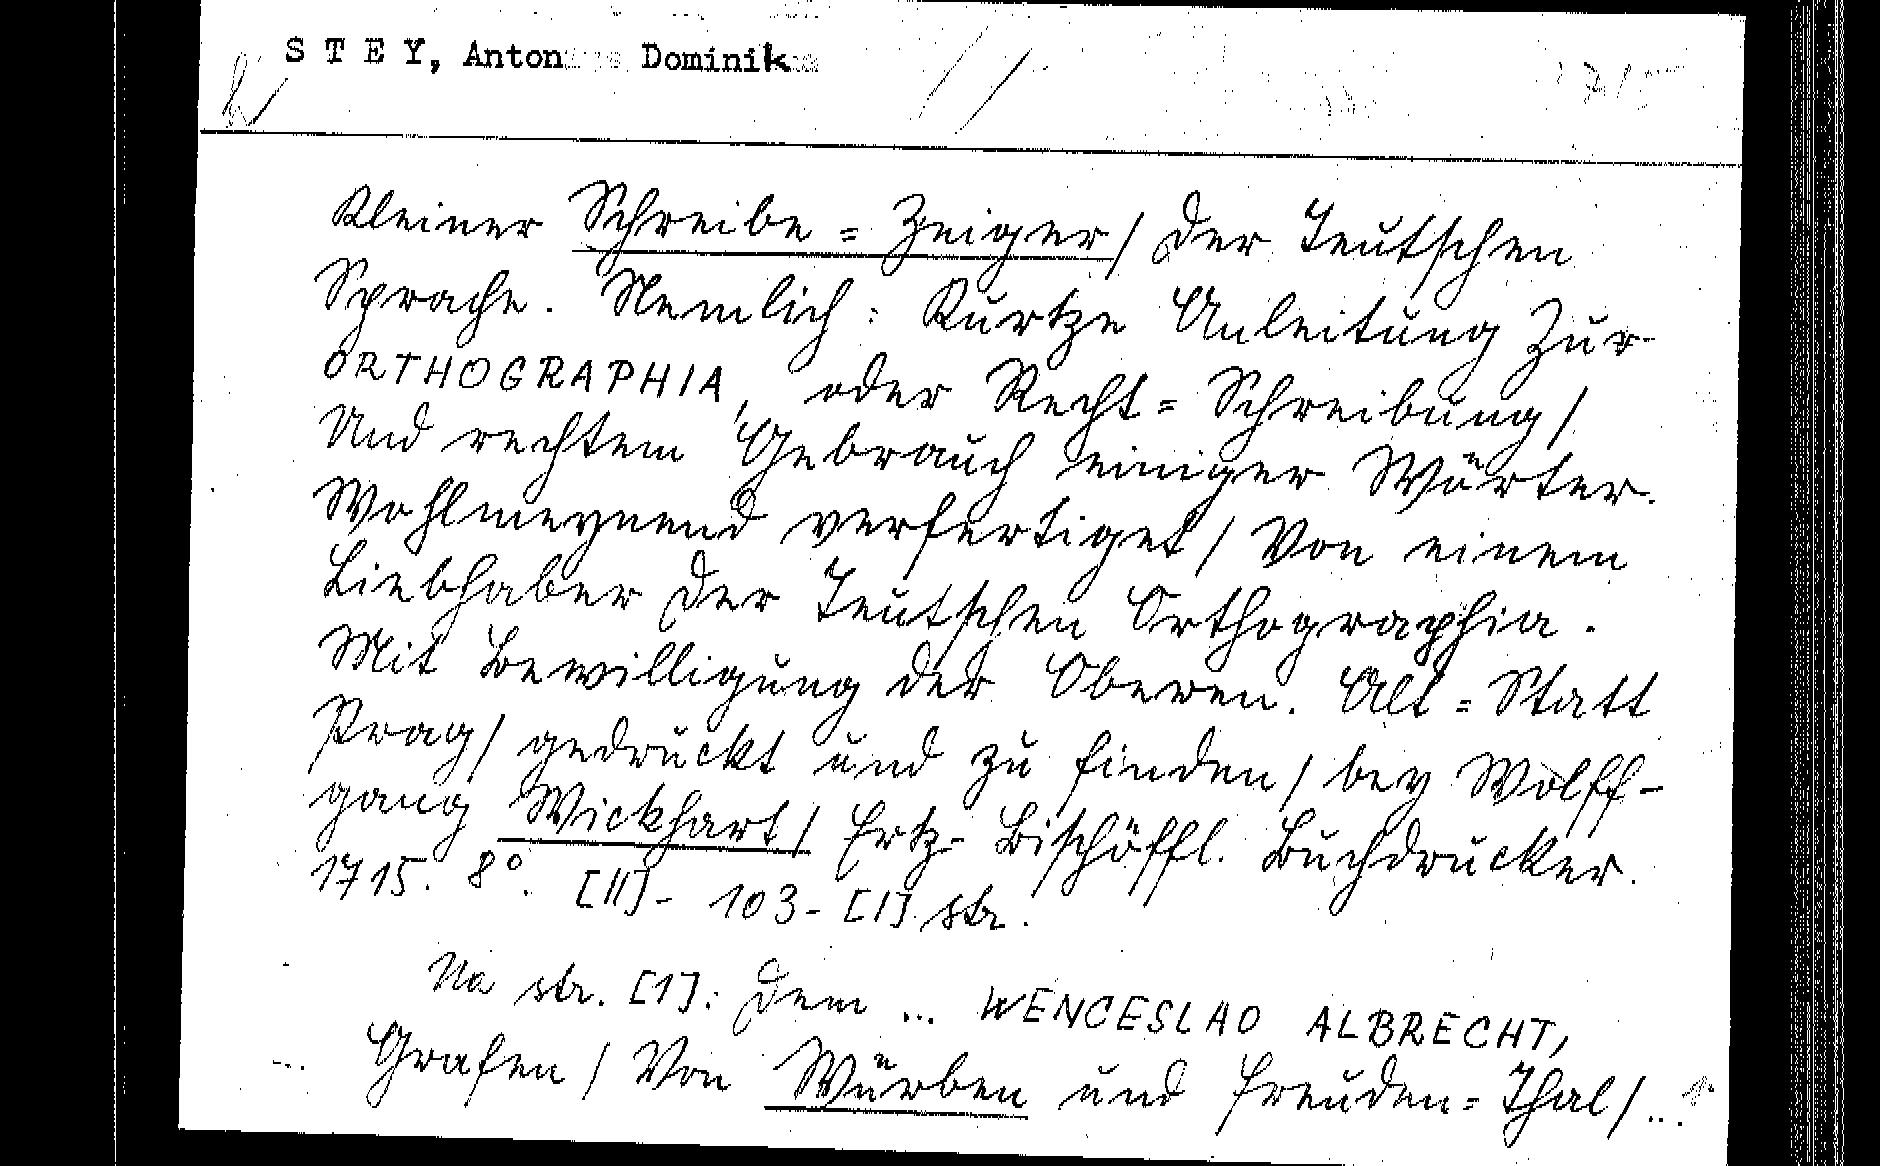 STEY, Anton Dominik
1715
Kleiner Schreibe = Zeiger / Der Teutschen
Sprache. Nemlich: Kurtze Anleitung Zur
ORTHOGRAPHIA, oder Recht = Schreibung /
Und rechtem Gebrauch einiger Wörter.
Wohlmeynend verfertiget / Von einem
Liebhaber Der Teutschen Orthographia.
Mit Bewilligung der Oberen. Alt = Statt
Prag / gedruckt und zu finden / bey Wolff-
gang Wickhart / Ertz- Bischöffl. Buchdrucker.
1715. 8°. [II]- 103- [I] str.
Na str. [1]: Dem ... WENCESLAO ALBRECHT,
... Grafen / Von Würben und Freuden = Thal / ...